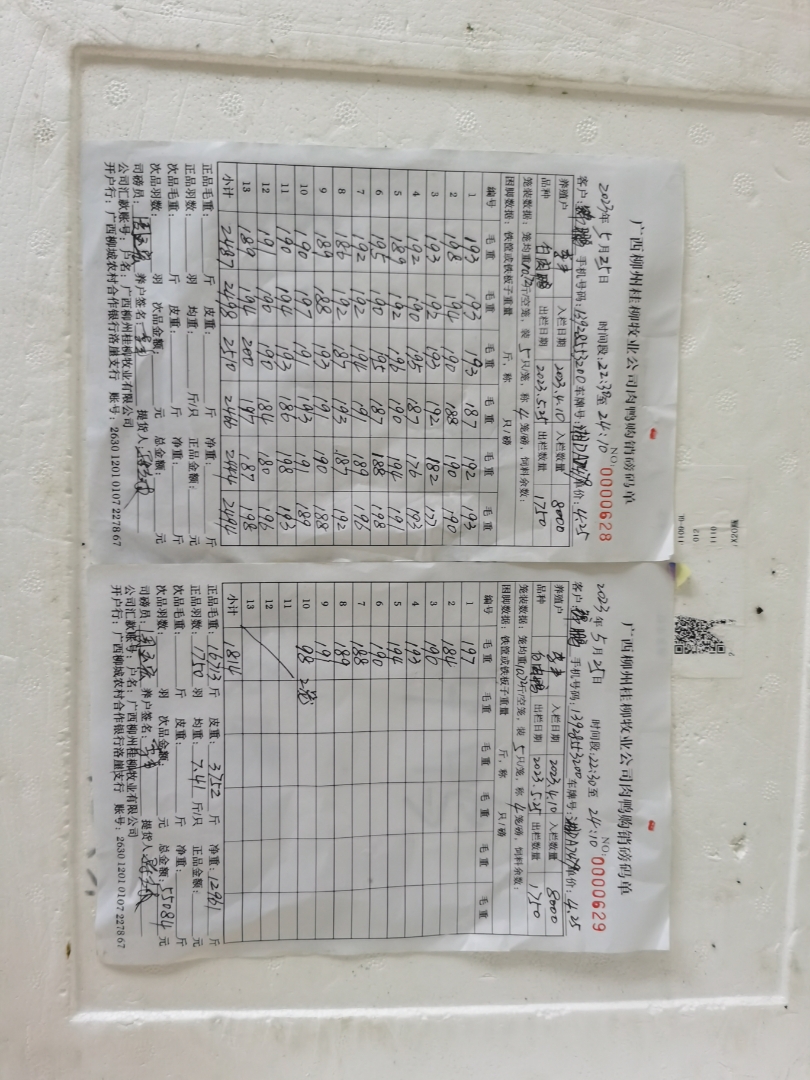 广西柳州桂柳牧业公司肉鸭购销磅码单
NO: 0000628
2023年5月25日 时间段:22:30至24:10
客户: 鹏 手机号码:13928553200 车牌号: 单价:4.25
养殖户 李 入栏日期 2023.4.10 入栏数量 8000
品种 白肉鸭 出栏日期 2023.5.25 出栏数量 1750
笼装数据:笼均重10.72斤/空笼,装5只/笼,称4笼/磅,饲料余数:
困脚数据:铁筐或铁板子重量 斤,称 只/磅
编号 毛重 毛重 毛重 毛重 毛重 毛重
1 193 193 193 187 192 193
2 198 194 190 188 190 190
3 193 192 193 192 182 177
4 192 190 195 187 176 193
5 189 192 196 190 194 191
6 195 190 195 187 188 198
7 192 192 194 191 189 196
8 186 192 185 193 187 192
9 189 188 193 191 190 188
10 190 197 191 193 191 189
11 190 194 193 186 198 193
12 191 190 190 184 180 196
13 189 194 200 197 187 198
小计 2487 2498 2510 2466 2444 2494
正品毛重: 斤 皮重: 斤 净重: 斤
正品羽数: 羽 均重: 斤/只 正品金额: 元
次品毛重: 斤 皮重: 斤 净重: 斤
次品羽数: 羽 次品金额: 元 总金额: 元
司磅员: 养户签名: 提货人:
公司汇款账号:户名:广西柳州桂柳牧业有限公司
开户行:广西柳城农村合作银行洛崖支行 账号:2630 1201 0107 2278 67
广西柳州桂柳牧业公司肉鸭购销磅码单
NO: 0000629
2023年5月25日 时间段:22:30至24:10
客户: 鹏 手机号码:13928553200 车牌号: 单价:4.25
养殖户 李 入栏日期 2023.4.10 入栏数量 8000
品种 白肉鸭 出栏日期 2023.5.25 出栏数量 1750
笼装数据:笼均重10.72斤/空笼,装5只/笼,称4笼/磅,饲料余数:
困脚数据:铁筐或铁板子重量 斤,称 只/磅
编号 毛重 毛重 毛重 毛重 毛重 毛重
1 197
2 184
3 190
4 193
5 194
6 190
7 188
8 189
9 191
10 98 2笼
11
12
13
小计 1814
正品毛重:16713斤 皮重:3752斤 净重:12961斤
正品羽数:1750羽 均重:7.41斤/只 正品金额: 元
次品毛重: 斤 皮重: 斤 净重: 斤
次品羽数: 羽 次品金额: 元 总金额:55084元
司磅员: 养户签名: 提货人:
公司汇款账号:户名:广西柳州桂柳牧业有限公司
开户行:广西柳城农村合作银行洛崖支行 账号:2630 1201 0107 2278 67